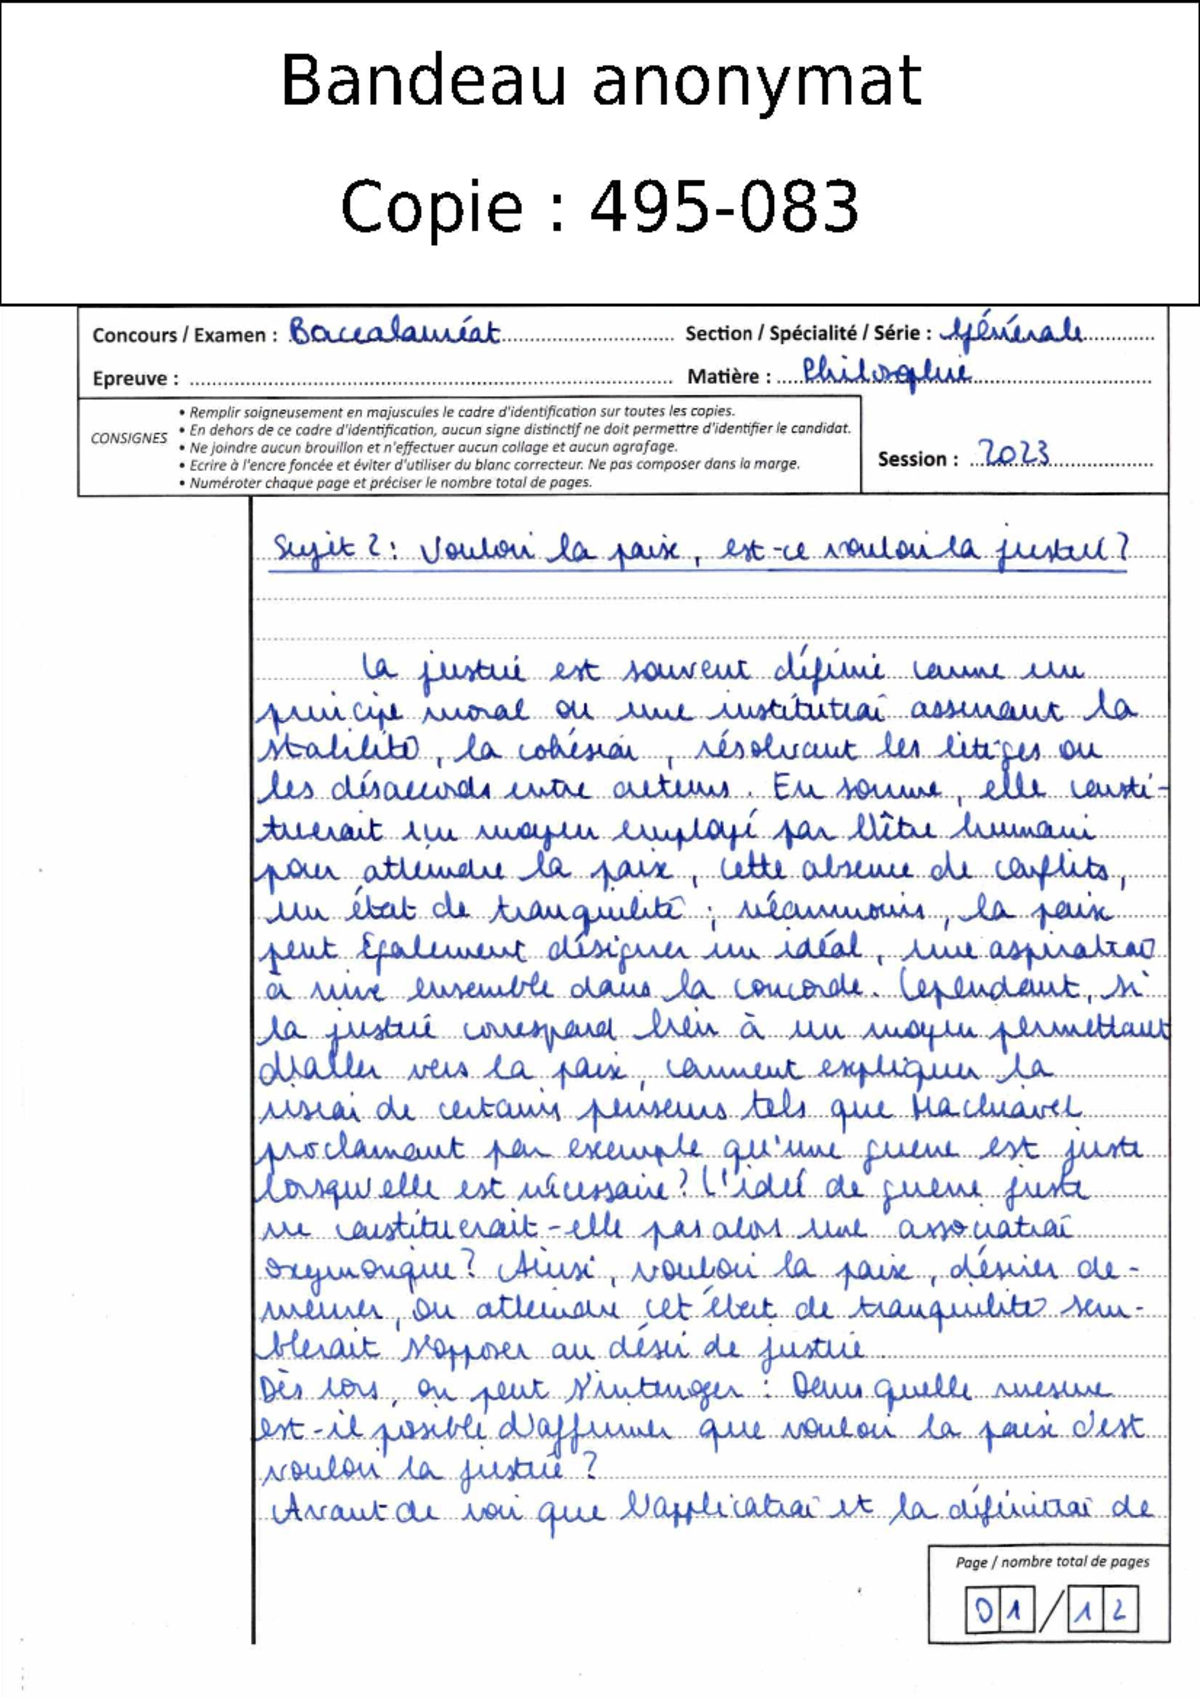 Bandeau anonymat
Copie : 495-083
Concours / Examen : Baccalauréat Section / Spécialité / Série : Générale
Epreuve : Matière : Philosophie
CONSIGNES
• Remplir soigneusement en majuscules le cadre d'identification sur toutes les copies.
• En dehors de ce cadre d'identification, aucun signe distinctif ne doit permettre d'identifier le candidat.
• Ne joindre aucun brouillon et n'effectuer aucun collage et aucun agrafage.
• Ecrire à l'encre foncée et éviter d'utiliser du blanc correcteur. Ne pas composer dans la marge.
• Numéroter chaque page et préciser le nombre total de pages.
Session : 2023
Sujet 2 : Vouloir la paix, est-ce vouloir la justice ?
La justice est souvent définie comme un
principe moral ou une institution assurant la
stabilité, la cohésion, résolvant les litiges ou
les désaccords entre acteurs. En somme, elle consti-
tuerait un moyen employé par l'être humain
pour atteindre la paix, cette absence de conflits,
un état de tranquilité ; néanmoins, la paix
peut également désigner un idéal, une aspiration
à vivre ensemble dans la concorde. Cependant, si
la justice correspond bien à un moyen permettant
d'aller vers la paix, comment expliquer la
vision de certains penseurs tels que Machiavel
proclamant par exemple qu'une guerre est juste
lorsqu'elle est nécessaire ? L'idée de guerre juste
ne constituerait-elle pas alors une association
oxymorique ? Ainsi, vouloir la paix, désirer de-
meurer, ou atteindre cet état de tranquilité sem-
blerait s'opposer au désir de justice.
Dès lors, on peut s'interroger : Dans quelle mesure
est-il possible d'affirmer que vouloir la paix c'est
vouloir la justice ?
Avant de voir que l'application et la définition de
Page / nombre total de pages
01 / 12